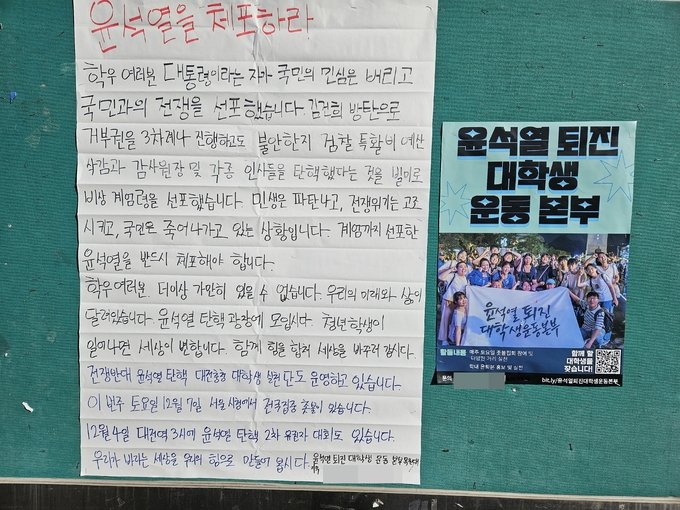 윤석열을 체포하라
학우 여러분 대통령이라는 자가 국민의 민심은 버리고
국민과의 전쟁을 선포했습니다. 김건희 방탄으로
거부권을 3차례나 진행하고도 불안한지 검찰 특활비 예산
삭감과 감사원장 및 각종 인사들을 탄핵했다는 것을 빌미로
비상 계엄령을 선포했습니다. 민생은 파탄나고, 전쟁위기는 고조
시키고, 국민은 죽어나가고 있는 상황입니다. 계엄까지 선포한
윤석열을 반드시 체포해야 합니다.
학우 여러분. 더이상 가만히 있을 수 없습니다. 우리의 미래와 삶이
달려있습니다. 윤석열 탄핵 광장에 모입시다. 청년학생이
일어나면 세상이 변합니다. 함께 힘을 합쳐 세상을 바꾸러 갑시다.
전쟁반대 윤석열 탄핵 대전충청 대학생 실천단도 운영하고 있습니다.
이번주 토요일 12월 7일 서울 시청에서 전국집중 촛불이 있습니다.
12월 4일 대전역 3시에 윤석열 탄핵 2차 유권자 대회도 있습니다.
우리가 바라는 세상을 우리의 힘으로 만들어 옵시다.
윤석열 퇴진 대학생 운동 본부
윤석열 퇴진
대학생
운동 본부
윤석열 퇴진
대학생운동본부
활동내용
매주 토요일 촛불집회 참여 및
다양한 거리 실천
학내 윤퇴본 홍보 및 실천
함께 할
대학생을
찾습니다!
문의
bit.ly/윤석열퇴진대학생운동본부